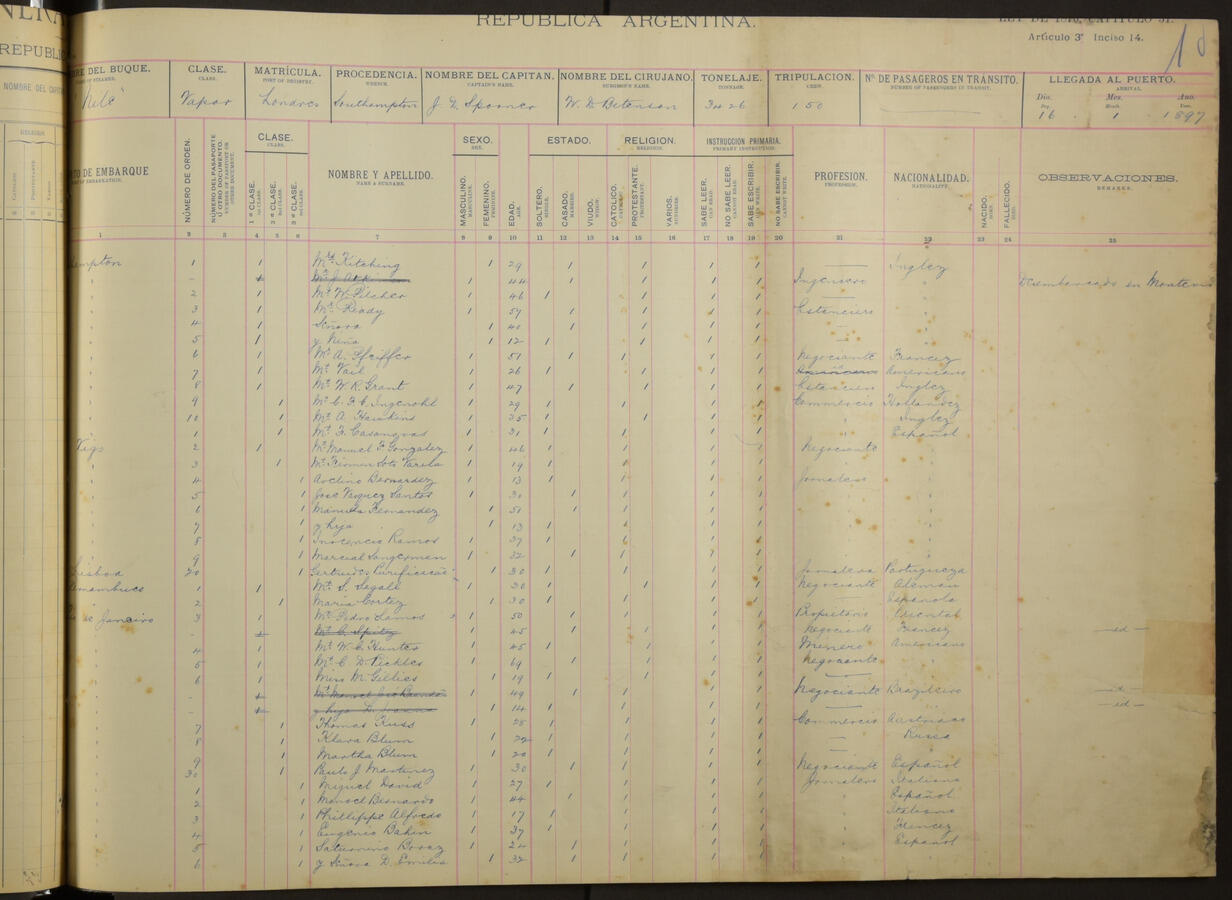 REPUBLICA ARGENTINA.
LEY DE 1876, CAPITULO 31.
Artículo 3º Inciso 14.
18
REPUBLI
NOMBRE DEL CAPI
RELIGION
PROTESTANTE.
RE DEL BUQUE. CLASE. MATRÍCULA. PROCEDENCIA. NOMBRE DEL CAPITAN. NOMBRE DEL CIRUJANO. TONELAJE. TRIPULACION. Nº DE PASAGEROS EN TRÁNSITO. LLEGADA AL PUERTO.
OF STEAMER. CLASS. PORT OF REGISTRY. WHENCE. CAPTAIN'S NAME. SURGEON'S NAME. TONNAGE. CREW. NUMBER OF PASSENGERS IN TRANSIT. ARRIVAL.
Dia. Mes. Ano.
Day. Month. Year.
"Nile" Vapor Londres Southampton J. D. Spooner W. D. Betenson 3426 150 16 1 1897
TO DE EMBARQUE NÚMERO DE ORDEN. NÚMERO DEL PASAPORTE Ú OTRO DOCUMENTO. CLASE. NOMBRE Y APELLIDO. SEXO. EDAD. ESTADO. RELIGION. INSTRUCCIÓN PRIMARIA. PROFESION. NACIONALIDAD. NACIDO. FALLECIDO. OBSERVACIONES.
NUMBER OF PASSPORT OR OTHER DOCUMENT. CLASS. NAME & SURNAME. SEX. AGE. RELIGION. PRIMARY INSTRUCTION. PROFESSION. NATIONALITY. BORN. DIED. REMARKS.
1ª CLASE. 2ª CLASE. 3ª CLASE. MASCULINO. FEMENINO. SOLTERO. CASADO. VIUDO. CATOLICO. PROTESTANTE. VARIOS. SABE LEER. NO SABE LEER. SABE ESCRIBIR. NO SABE ESCRIBIR.
1 2 3 4 5 6 7 8 9 10 11 12 13 14 15 16 17 18 19 20 21 22 23 24 25
hampton 1 1 Mrs Kitching 1 29 1 1 1 1 — Inglez
" - 1 Mr J. Atkinson 1 44 1 1 1 1 Ingeniero " Desembarcado en Montevi
" 2 1 Mr W. Pilcher 1 46 1 1 1 1 — "
" 3 1 Mr Ready 1 57 1 1 1 1 Estanciero "
" 4 1 Señora 1 40 1 1 1 1 — "
" 5 1 y Niña 1 12 1 1 1 1 — "
" 6 1 Mr A. Pfeiffer 1 51 1 1 1 1 Negociante Francez
" 7 1 Mr Vail 1 26 1 1 1 1 Americano
" 8 1 Mr W. R. Grant 1 47 1 1 1 1 Estanciero Inglez
" 9 1 Mr C. F. A. Ingenohl 1 29 1 1 1 1 Commercio Hollandez
" 10 1 Mr A. Hawkins 1 35 1 1 1 1 " Inglez
" 1 1 Mr F. Casanovas 1 31 1 1 1 1 " Español
Vigo 2 1 Mr Manuel F. Gonzalez 1 46 1 1 1 1 Negociante "
" 3 1 Mr Fermin Soto Varela 1 19 1 1 1 1 "
" 4 1 Avelino Bernardez 1 13 1 1 1 1 Jornalero "
" 5 1 Jose Vazquez Santos 1 30 1 1 1 1 " "
" 6 1 Manuela Fernandez 1 51 1 1 1 1 " "
" 7 1 y hija 1 13 1 1 1 1 " "
" 8 1 Inocencio Ramos 1 37 1 1 1 1 " "
" 9 1 Marcial Sangerman 1 32 1 1 1 1 " "
Lisboa 20 1 Gertrudes Purificacão 1 30 1 1 1 1 Jornalera Portugueza
rnambuco 1 1 Mr S. Segall 1 30 1 1 1 1 Negociante Aleman
" 2 1 Maria Cortez 1 30 1 1 1 1 Española
Rio de Janeiro 3 1 Mr Pedro Lamos 1 50 1 1 1 1 Propietario Oriental
" - 1 Mr C. Spitz 1 45 1 1 1 1 Negociante Francez —id—
" 4 1 Mr W. C. Hunter 1 45 1 1 1 1 Minero Americano
" 5 1 Mr C. D. Pickles 1 69 1 1 1 1 Negociante "
" 6 1 Miss M. Gillies 1 19 1 1 1 1 — "
" - 1 1 49 1 1 1 1 Negociante Brazileiro —id—
" - 1 y hija D. Joanna 1 14 1 1 1 1 — " —id—
" 7 1 Thomas Russ 1 28 1 1 1 1 Commercio Austriaco
" 8 1 Klara Blum 1 22 1 1 1 1 — Russa
" 9 1 Martha Blum 1 20 1 1 1 1 — "
" 30 1 Paulo J. Martinez 1 30 1 1 1 1 Negociante Español
" 1 1 Miguel David 1 27 1 1 1 1 Jornalero Italiano
" 2 1 Manoel Bernardo 1 44 1 1 1 1 " Español
" 3 1 Phillippe Alfredo 1 17 1 1 1 1 " Italiano
" 4 1 Eugenio Bahin 1 37 1 1 1 1 " Francez
" 5 1 Saturnino Boraz 1 24 1 1 1 1 " Español
" 6 1 y Señora D. Emilia 1 32 1 1 1 1 " "